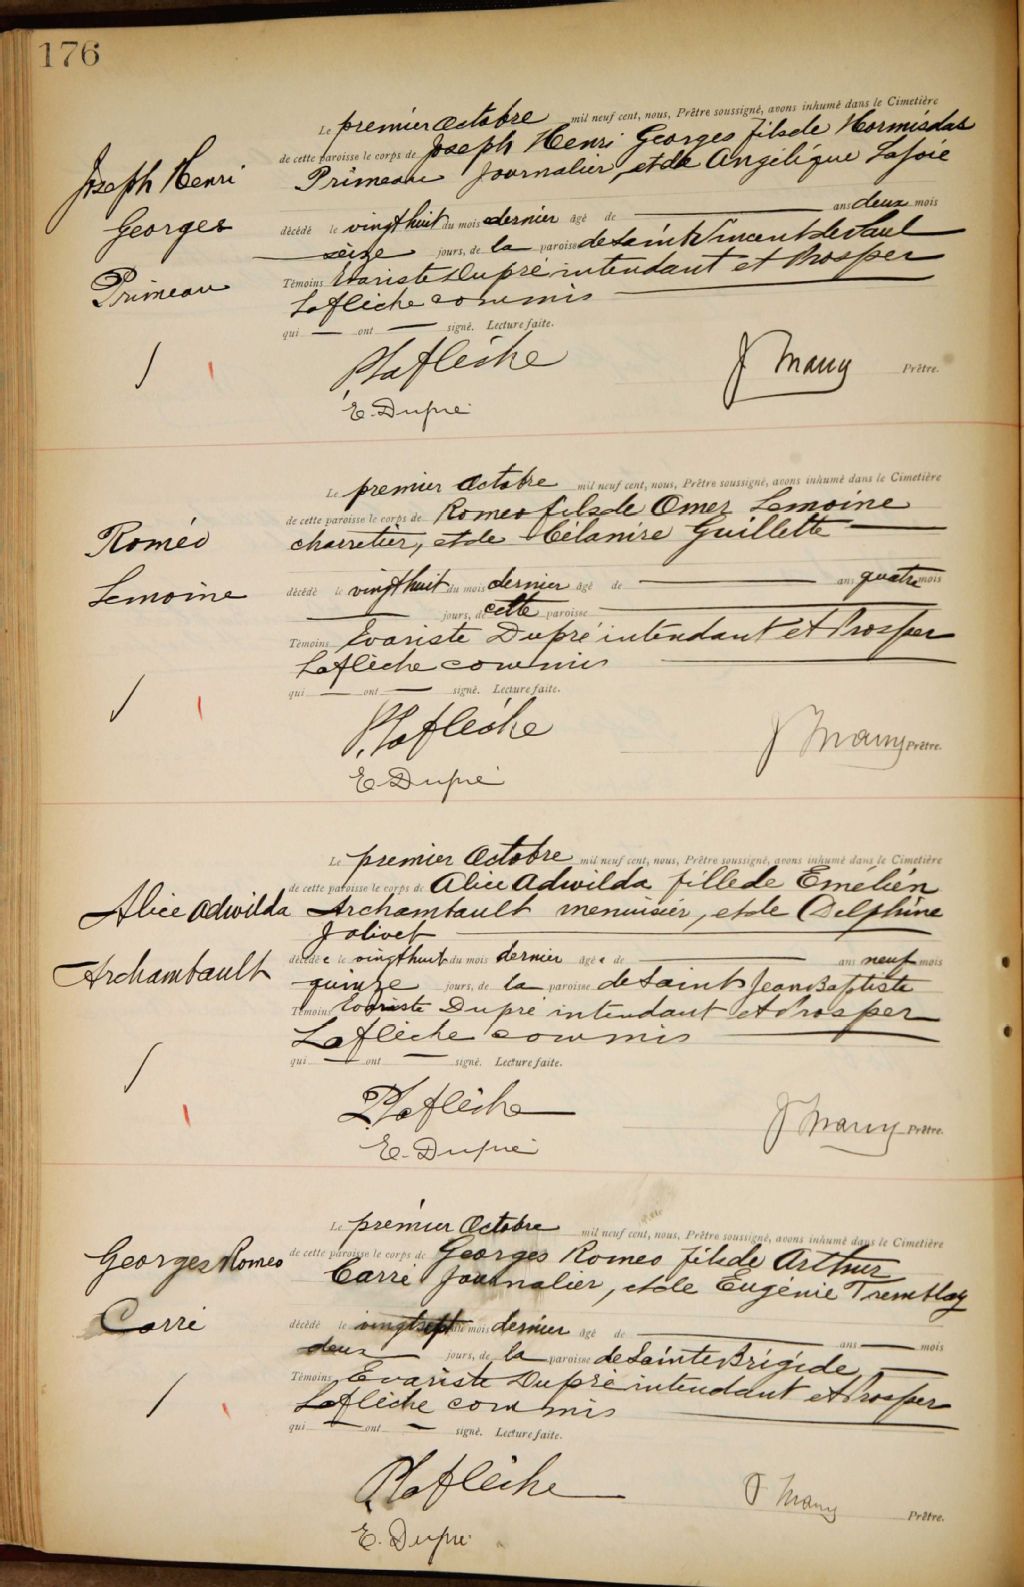 176
Le premier Octobre mil neuf cent, nous, Prêtre soussigné, avons inhumé dans le Cimetière
de cette paroisse le corps de Joseph Henri Georges fils de Hormisdas
Primeau Journalier, et de Angélique Lajoie
décédé le vingthuit du mois dernier âgé de ans deux mois
seize jours, de la paroisse de Saint Vincent de Paul
Témoins Evariste Dupré intendant et Prosper
Laflèche commis
qui ont signé. Lecture faite.
Joseph Henri
Georges
Primeau
P Laflèche
J Mauy Prêtre.
E. Dupré
Le premier Octobre mil neuf cent, nous, Prêtre soussigné, avons inhumé dans le Cimetière
de cette paroisse le corps de Romeo fils de Omer Lemoine
charretier, et de Célanire Guillette
décédé le vingthuit du mois dernier âgé de ans quatre mois
jours, de cette paroisse
Témoins Evariste Dupré intendant et Prosper
Laflèche commis
qui ont signé. Lecture faite.
Roméo
Lemoine
P. Laflèche
J Mauy Prêtre.
E. Dupré
Le premier Octobre mil neuf cent, nous, Prêtre soussigné, avons inhumé dans le Cimetière
de cette paroisse le corps de Alice Adwilda fille de Emélién
Archambault menuisier, et de Delphine
Jolivet
décédée le vingthuit du mois dernier âgée de ans neuf mois
quinze jours, de la paroisse de Saint Jean Baptiste
Témoins Evariste Dupré intendant et Prosper
Laflèche commis
qui ont signé. Lecture faite.
Alice Adwilda
Archambault
P. Laflèche
J Mauy Prêtre.
E. Dupré
Le premier Octobre mil neuf cent, nous, Prêtre soussigné, avons inhumé dans le Cimetière
de cette paroisse le corps de Georges Romeo fils de Arthur
Carré Journalier, et de Eugénie Tremblay
décédé le vingtsept du mois dernier âgé de ans mois
deux jours, de la paroisse de Sainte Brigide
Témoins Evariste Dupré intendant et Prosper
Laflèche commis
qui ont signé. Lecture faite.
Georges Romeo
Carré
P. Laflèche
J Mauy Prêtre.
E. Dupré